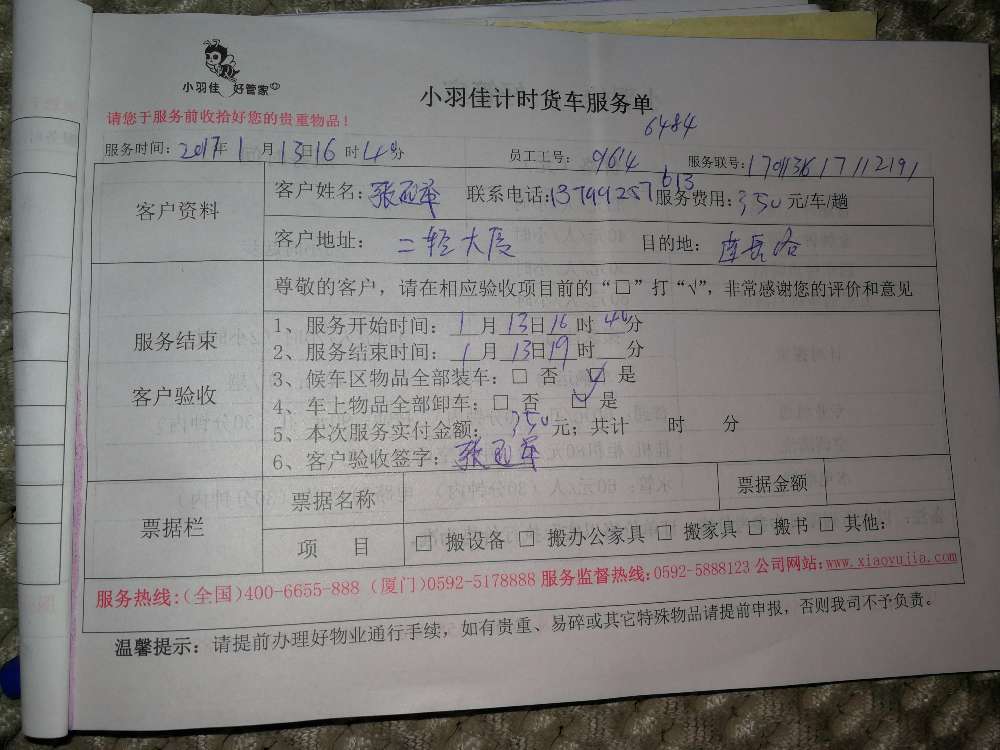 小羽佳 好管家
小羽佳计时货车服务单
请您于服务前收拾好您的贵重物品！
6484
服务时间：2017年1月13日16时40分 员工工号：9614 服务联号：
客户资料
客户姓名： 联系电话:13799257613 服务费用:350元/车/趟
客户地址：二轻大厦 目的地：
服务结束
客户验收
尊敬的客户，请在相应验收项目前的“□”打“√”，非常感谢您的评价和意见
1、服务开始时间：1月13日16时40分
2、服务结束时间：1月13日19时 分
3、候车区物品全部装车：□ 否 □ 是
4、车上物品全部卸车：□ 否 □ 是
5、本次服务实付金额：350元；共计 时 分
6、客户验收签字：
票据栏
票据名称 票据金额
项 目 □ 搬设备 □ 搬办公家具 □ 搬家具 □ 搬书 □ 其他：
服务热线:(全国)400-6655-888 (厦门)0592-5178888 服务监督热线:0592-5888123 公司网站:www.xiaoyujia.com
温馨提示：请提前办理好物业通行手续，如有贵重、易碎或其它特殊物品请提前申报，否则我司不予负责。